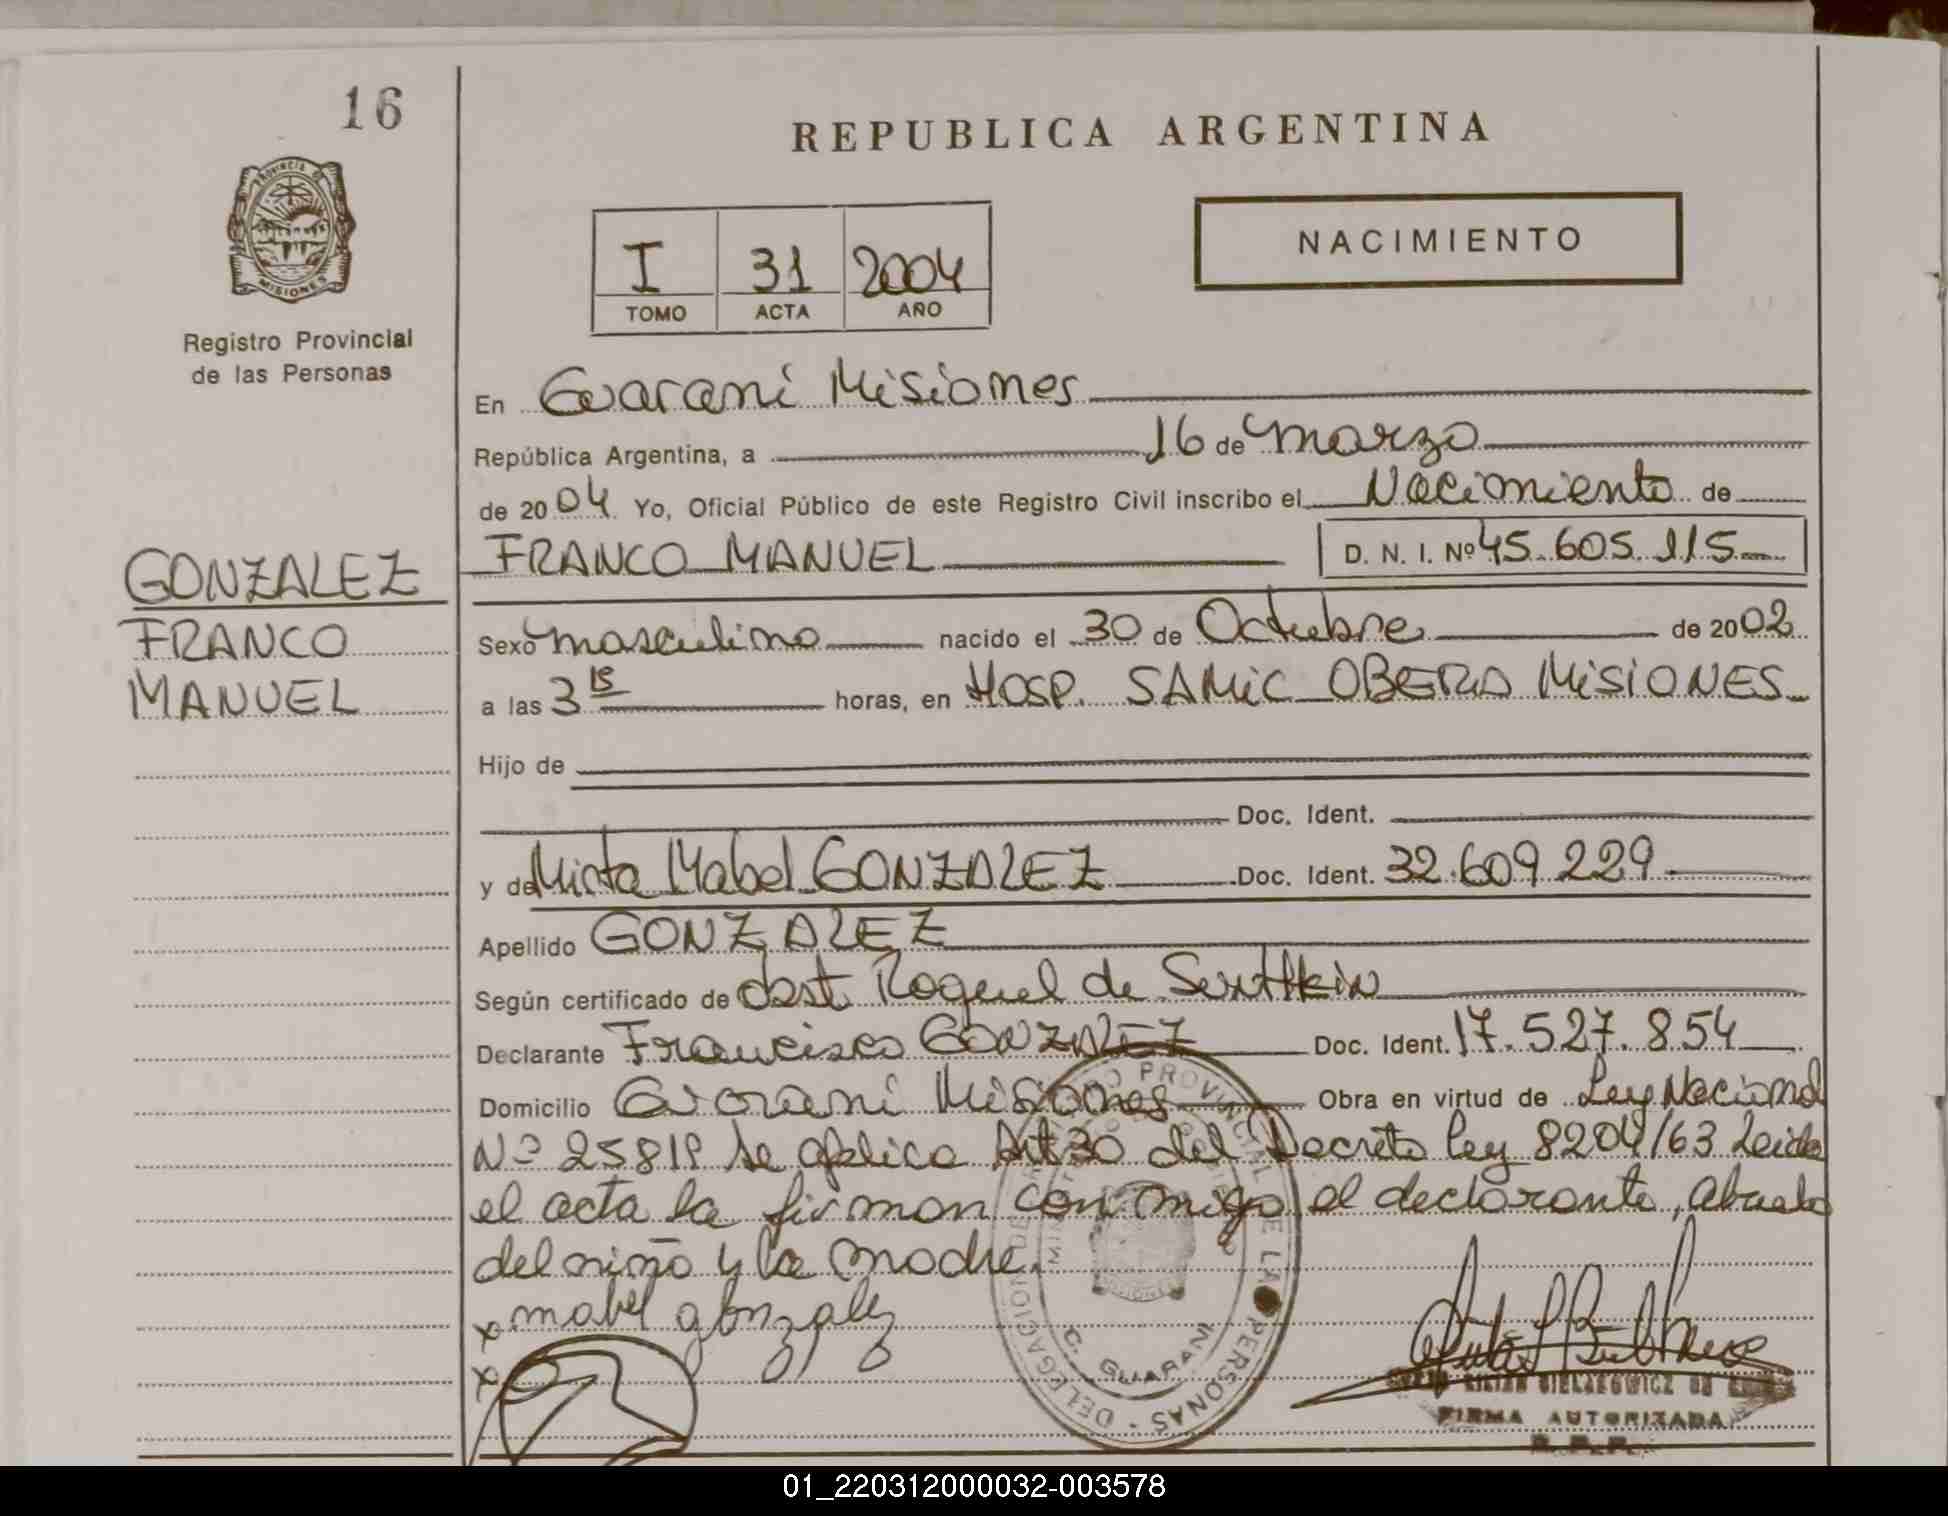 16
REPUBLICA ARGENTINA
PROVINCIA D
MISIONES
Registro Provincial
de las Personas
I 31 2004
TOMO ACTA AÑO
NACIMIENTO
En Guarani Misiones
República Argentina, a 16 de marzo
de 2004 Yo, Oficial Público de este Registro Civil inscribo el Nacimiento de
FRANCO MANUEL D. N. I. Nº 45.605.115
GONZALEZ
FRANCO
MANUEL
Sexo masculino nacido el 30 de Octubre de 2002
a las 3 15 horas, en HOSP. SAMIC OBERA MISIONES
Hijo de
Doc. Ident.
y de Mirta Mabel GONZALEZ Doc. Ident. 32.609.229
Apellido GONZALEZ
Según certificado de obst. Raquel de
Declarante Francisco GONZALEZ Doc. Ident. 17.527.854
Domicilio Guarani Misiones Obra en virtud de Ley Nacional
Nº 25819 se aplica Art 30 del Decreto ley 8204/63 Leida
el acta la firman conmigo el declarante, abuelo
del niño y la madre.
x mabel gonzalez
x
C. GUARANI
DELEGACION DE PROVINCIAL DE LAS PERSONAS
FIRMA AUTORIZADA
R.P.P.
01_220312000032-003578